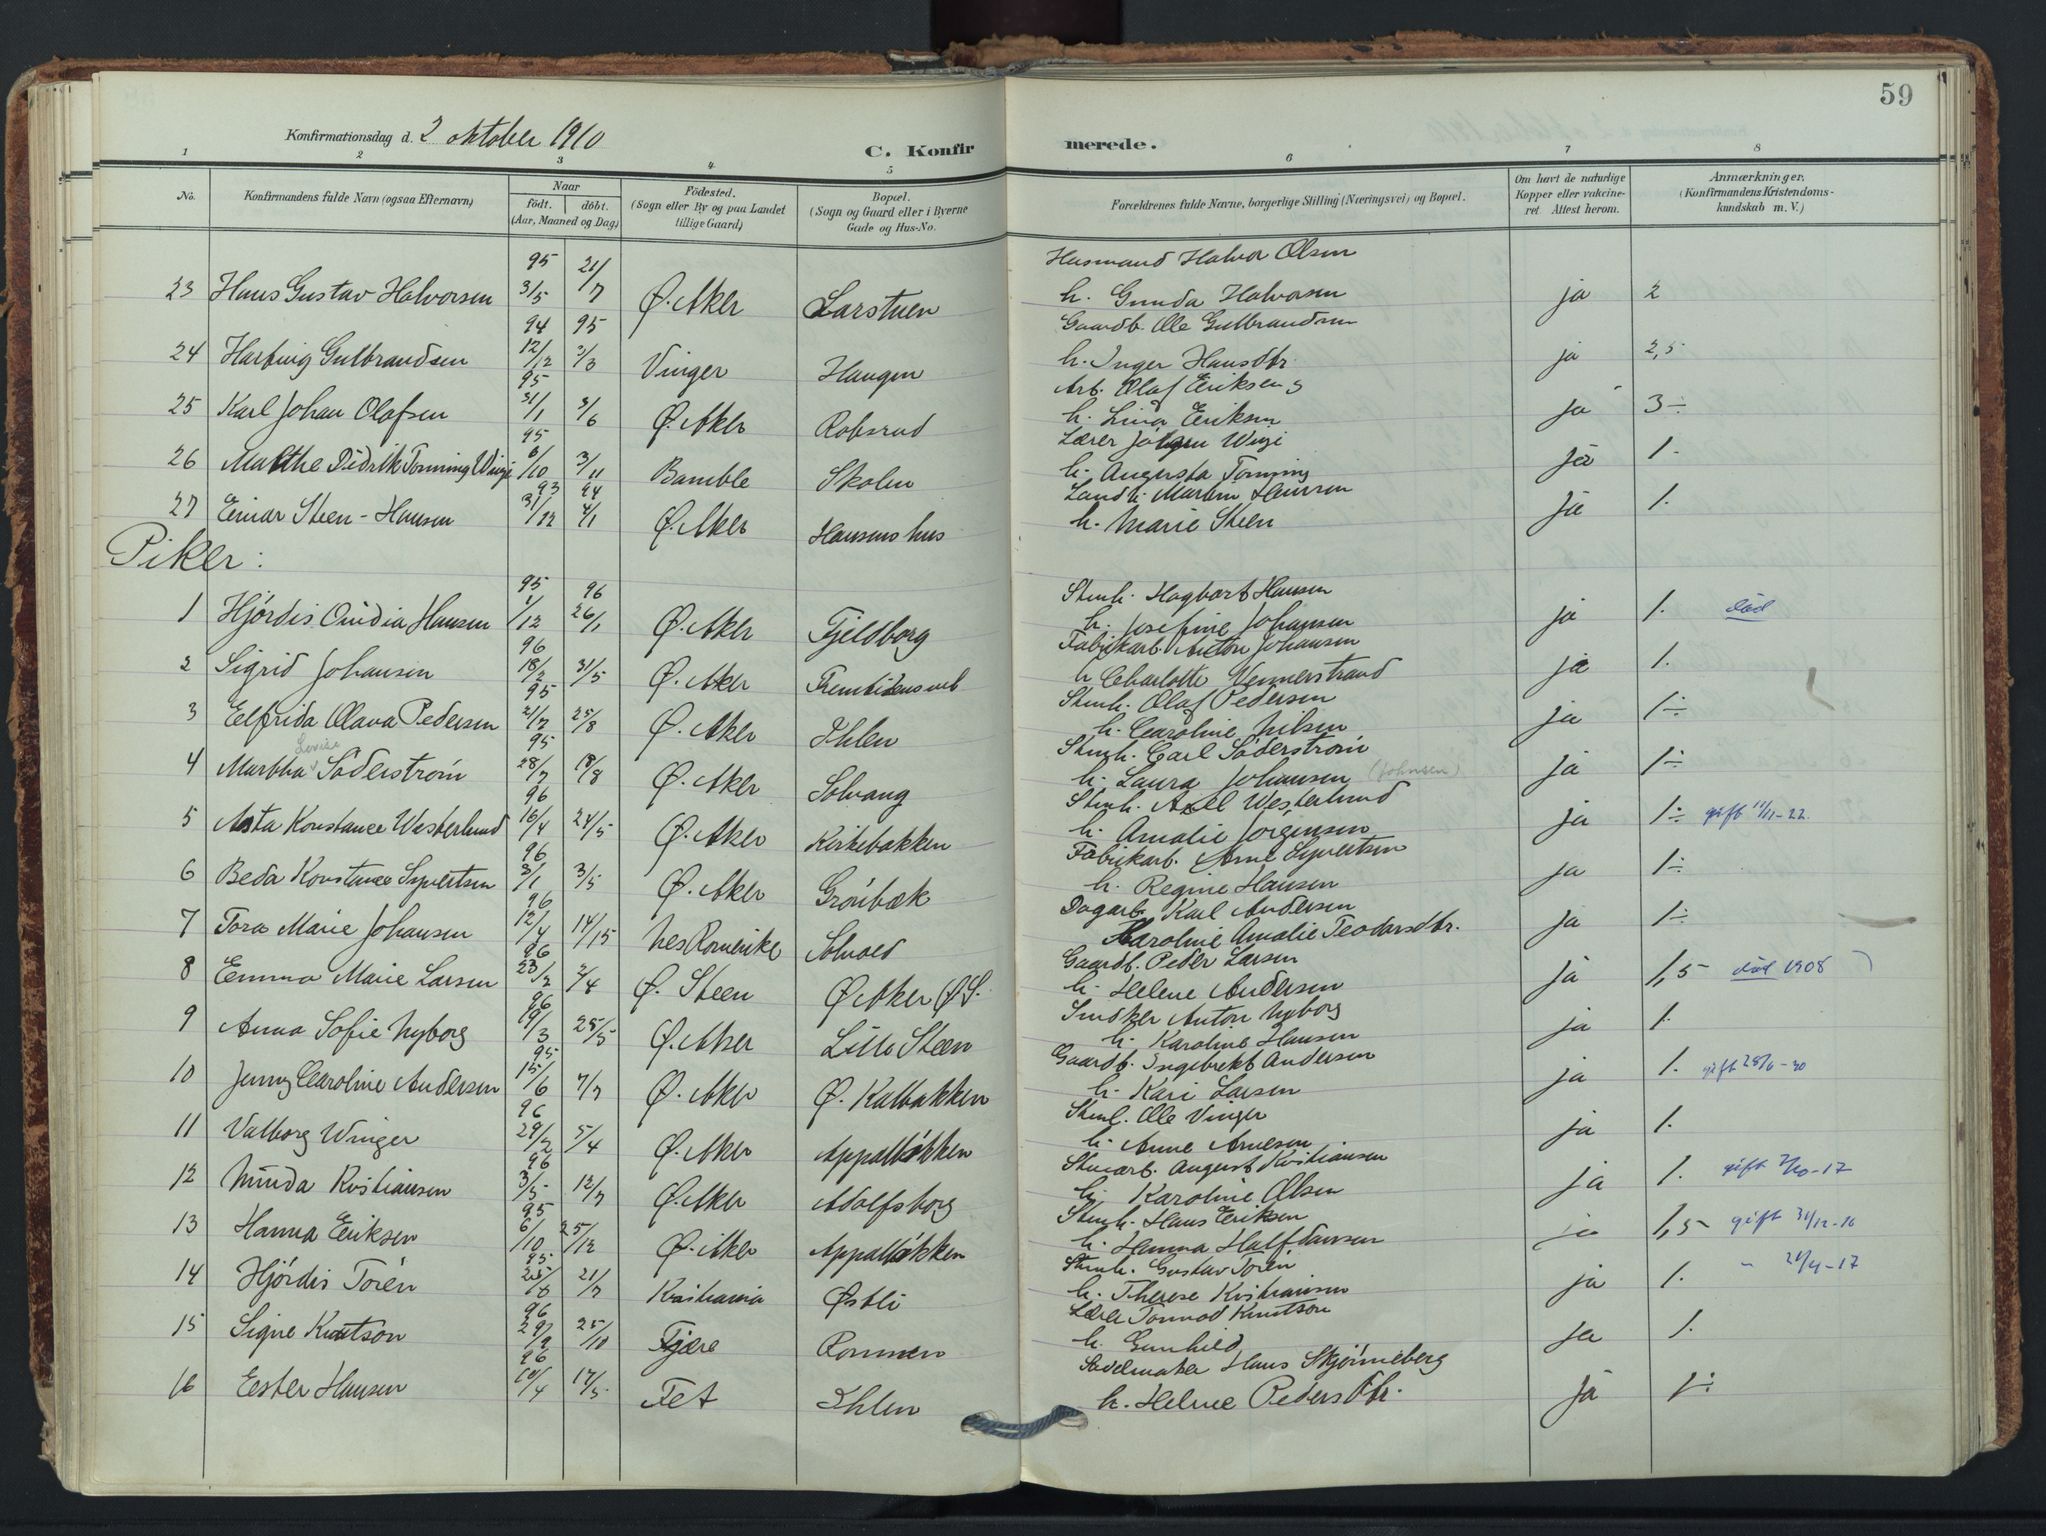 59
Konfirmationsdag d. 2 oktober 1910
C. Konfirmerede.
1 2 3 4 5 6 7 8
No. Konfirmandens fulde Navn (ogsaa Efternavn) Naar födt. döbt. (Aar, Maaned og Dag) Födested. (Sogn eller By og paa Landet tillige Gaard) Bopæl. (Sogn og Gaard eller i Byerne Gade og Hus-No. Forældrenes fulde Navne, borgerlige Stilling (Næringsvei) og Bopæl. Om havt de naturlige Kopper eller vakcineret. Attest herom. Anmærkninger. (Konfirmandens Kristendomskundskab m. V.)
95 21/7 Husmand Halvor Olsen
23 Hans Gustav Halvorsen 3/5 Ø. Aker Larstuen h. Gunda Halvorsen ja 2
94 95 Gaardb. Ole Gulbrandsen
24 Gulbrandsen 12/12 3/3 Vinger Haugen h. Inger Hansdtr. ja 2,5
95 Arb. Olaf Eriksen
25 Karl Johan Olafsen 31/1 3/6 Ø. Aker Robsrud h. Lina Eriksen ja 3÷
95 Lærer Wigi
26 Malthe Didrik Tonning Wigi 6/10 3/11 Bamble Skolen h. Augusta Tonning ja 1.
93 94 Landh. Martin Hansen
27 Einar Steen-Hansen 31/12 4/1 Ø. Aker Hansens hus h. Marie Steen ja 1.
Piker:
95 96 Stenh. Hagbart Hansen
1 Hjördis Hansen 1/12 26/1 Ø. Aker Fjeldborg h. Josefine Johansen ja 1. död
96 Fabrikarb. Anton Johansen
2 Sigrid Johansen 18/2 31/5 Ø. Aker h Charlotte Vennerstrand ja 1.
95 Stenh. Olaf Pedersen
3 Elfrida Olava Pedersen 21/7 25/8 Ø. Aker Ihlen h. Caroline Nilsen ja 1÷
Lovise
95 Stenh. Carl Söderström
4 Martha Söderström 28/7 18/8 Ø. Aker Solvang h. Laura Johansen (Johnsen) ja 1÷
96 Stenh. Axel Westerlund
5 Asta Konstance Westerlund 16/4 24/5 Ø. Aker Kirkebakken h. Amalie Jörgensen ja 1÷ gift 11/11-22.
96 Fabrikarb. Arne Syvertsen
6 Beda Konstance Syvertsen 3/1 3/5 Ø. Aker Grönbæk h. Regine Hansen ja 1÷
96 Dagarb. Karl Andersen
7 Tora Marie Johansen 12/4 14/15 Nes Romerike Solvold Karoline Amalie Teodorsdtr. ja 1÷
96 Gaardb. Peder Larsen
8 Emma Marie Larsen 23/2 2/4 Ø. Steen Ø Aker (Ø S. h. Helene Andersen ja 1,5 död 1908
96 Anton Nyborg
9 Anna Sofie Nyborg 19/3 25/5 Ø. Aker Lille Steen h. Karoline Hansen ja 1.
95 Gaardb. Ingebrekt Andersen
10 Jenny Caroline Andersen 15/6 7/7 Ø. Aker Ø. Kalbakken h. Kari Larsen ja 1. gift 28/6-30
96 Stenh. Ole Vinger
11 Valborg Winger 29/2 5/4 Ø. Aker Appalløkken h. Anne Arnesen ja 1.
96 Stenarb. August Kristiansen
12 Minda Kristiansen 3/5 12/7 Ø. Aker Adolfsborg h. Karoline Olsen ja 1. gift 7/10-17
95 Stenh. Hans Eriksen
13 Hanna Eriksen 6/10 25/12 Ø. Aker Appalløkken h. Hanna Halfdansen ja 1,5 gift 31/12-16
95 Stenh. Gustav Torén
14 Hjördis Torén 21/7 Kristiania Østli h. Therese Kristiansen ja 1. " 21/4-17
96 Lærer Tormod Knutson
15 Signe Knutson 29/9 25/10 Fjære Rommen h. Gunhild ja 1.
96 Sadelmaker Hans Skjönneberg
16 Ester Hansen 10/4 17/5 Fet Ihlen h. Helene Pedersdtr. ja 1÷